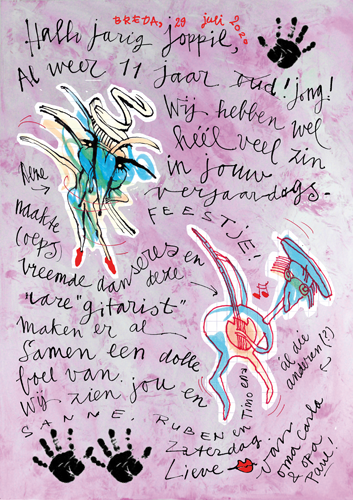 BREDA, 29 juli 2020
Hallo jarig joppie,
Al weer 11 jaar oud! jong!
Wij hebben wel
héél veel zin
in jouw
verjaardags-
FEESTJE!
Deze
naakte
(oeps)
vreemde danseres en
deze
rare "gitarist"
maken er al
samen een dolle
boel van.
Wij zien jou en
SANNE, RUBEN
en Timo en a
al die
anderen(?)
Zaterdag.
Lieve
van
oma Carla
& opa
Paul!